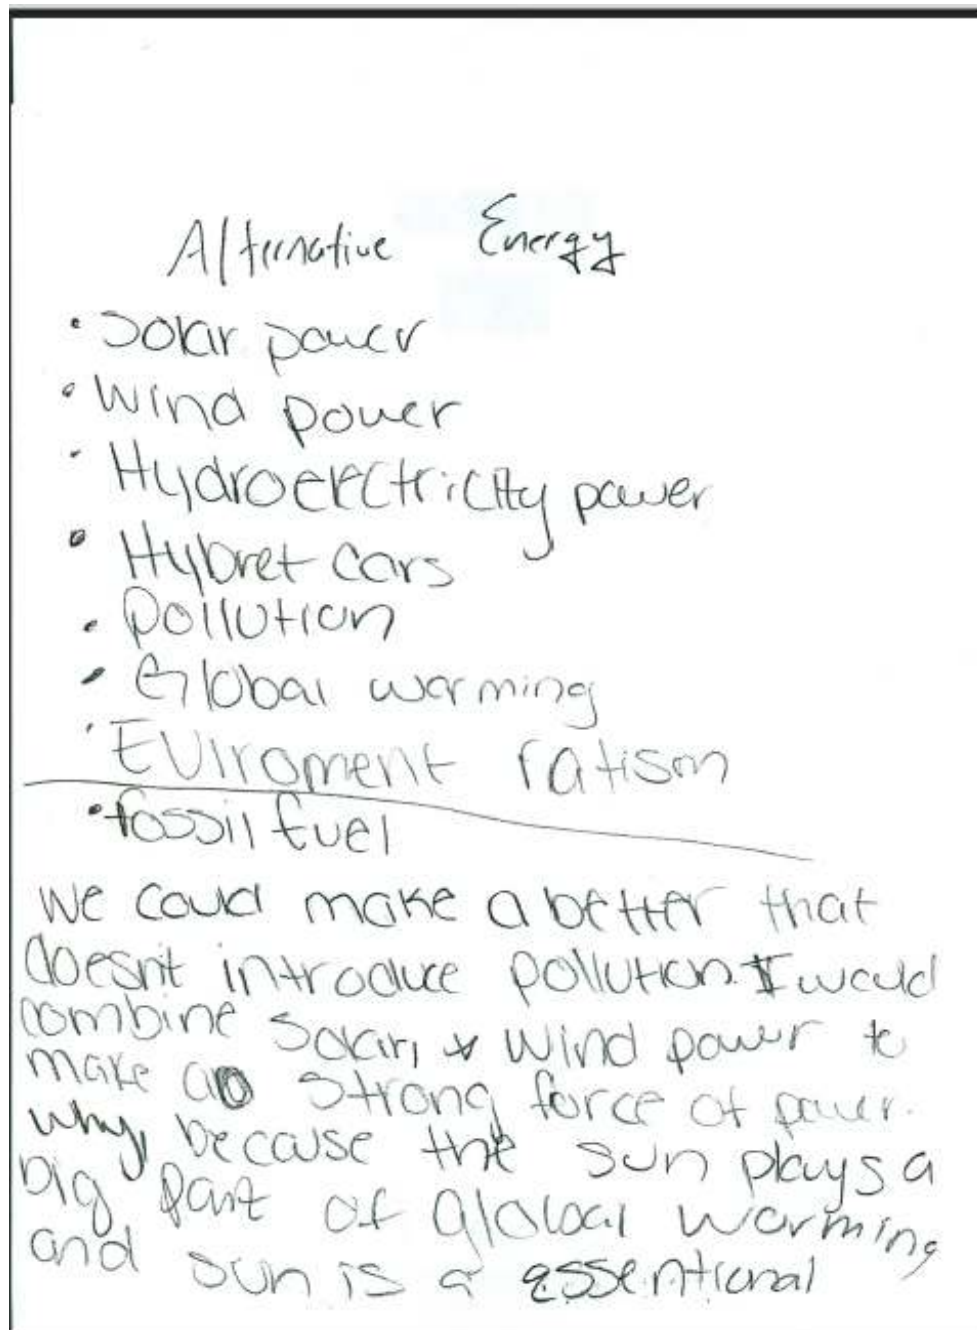 Alternative Energy
• Solar power
• Wind power
• Hydroelectricity power
• Hybret cars
• Pollution
• Global warming
• Eviroment ratism
• fossil fuel
we could make a better that
doesn't introduce pollution. I would
combine Solar, & Wind power to
make a strong force of power.
why, because the sun plays a
big part of glaloal warming
and sun is a essentional